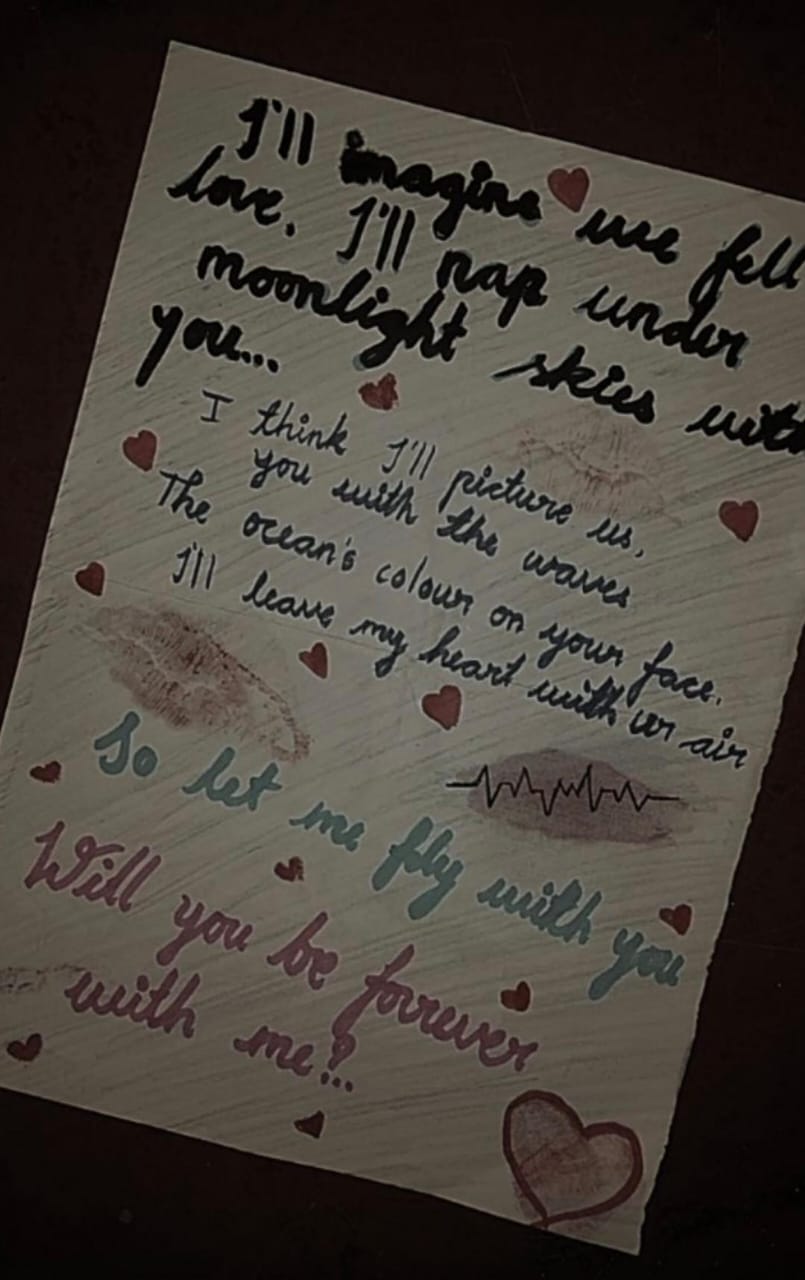 I'll imagine we fell
love, I'll nap under
moonlight skies with
you...
I think I'll picture us,
you with the waves
The ocean's colour on your face.
I'll leave my heart with ur air
So let me fly with you
Will you be forever
with me?..